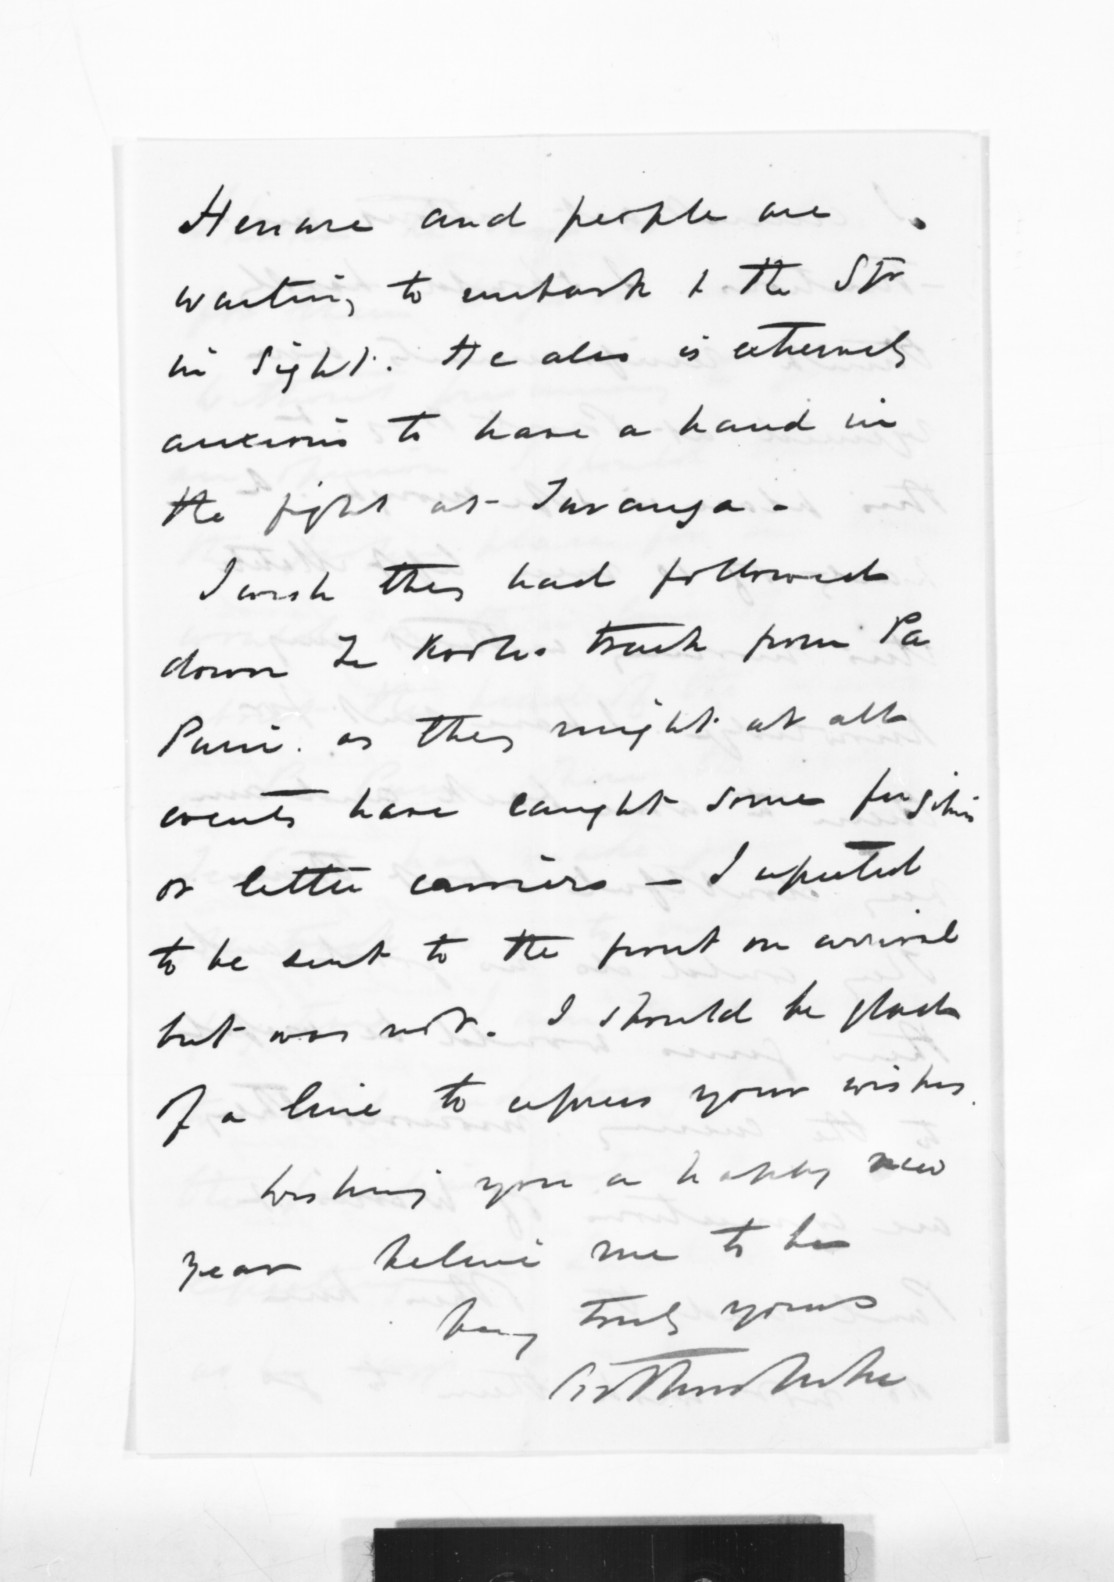 Henare and people are
waiting to embark & the Str
in sight. He also is extremely
anxious to have a hand in
the fight at Tauranga -
I wish they had followed
down Te Kooti's track from Pa
Puni. as they might at all
events have caught some fugitives
or letter carriers - I expected
to be sent to the front on arrival
but was not. I should be glad
of a line to express your wishes.
Wishing you a happy new
year believe me to be
very truly yours